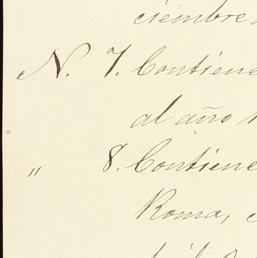 ciembre
N. 7. Contiene
al año
" 8. Contiene
Roma,